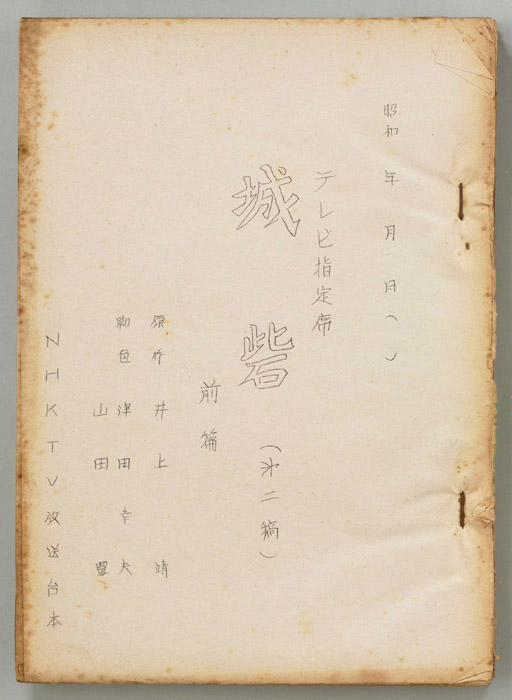 昭和 年 月 日( )
テレビ指定席
城砦(㐧二稿)
前篇
原作 井上靖
脚色 津田幸夫
山田豊
NHKTV放送台本